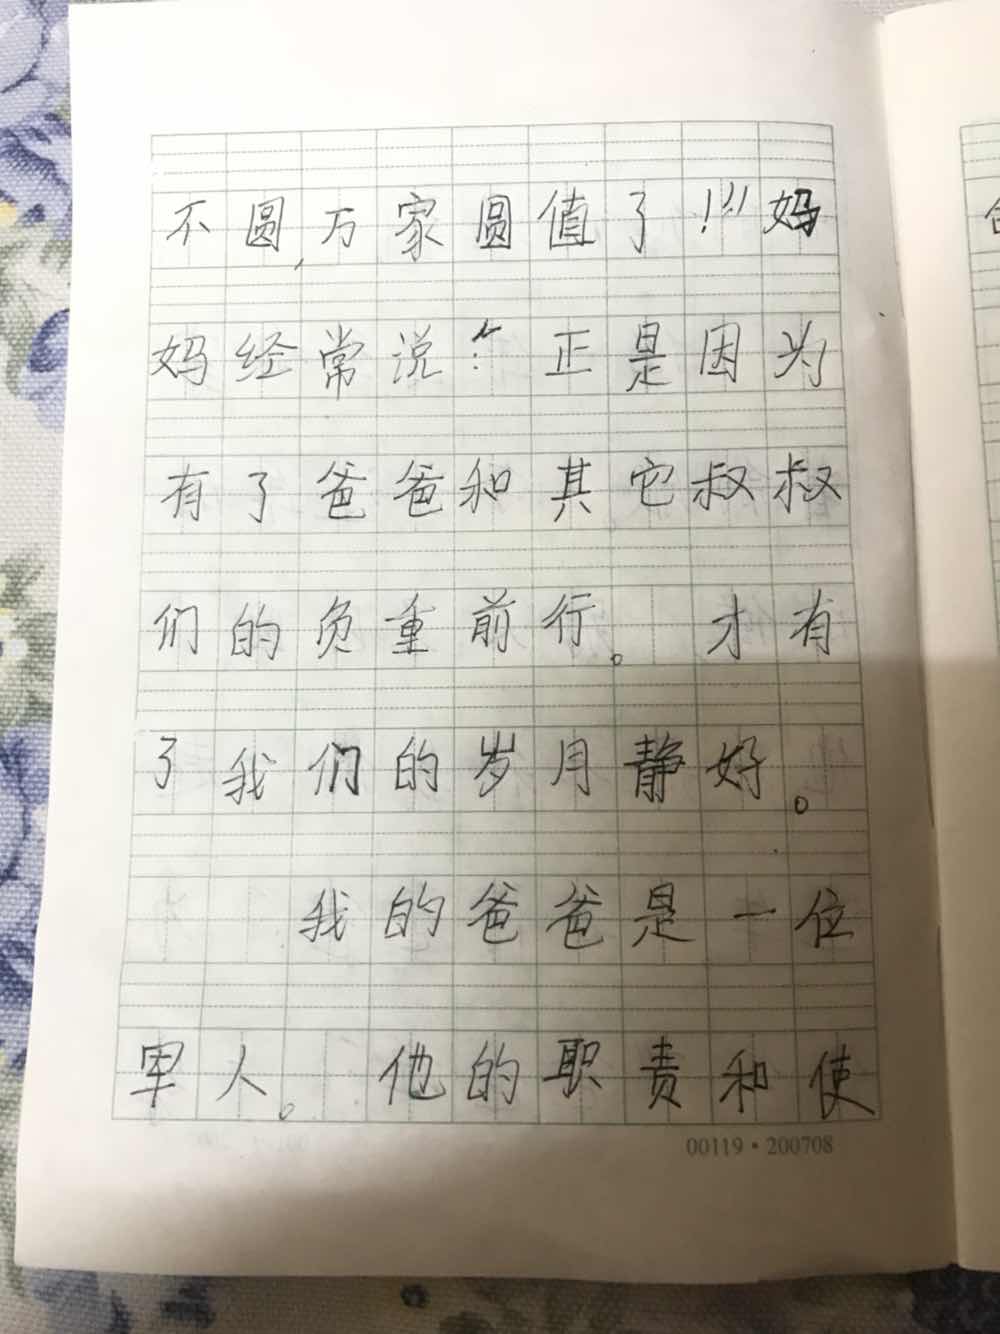 不圆,万家圆值了!"妈
妈经常说:"正是因为
有了爸爸和其它叔叔
们的负重前行。才有
了我们的岁月静好。
我的爸爸是一位
军人。他的职责和使
00119·200708